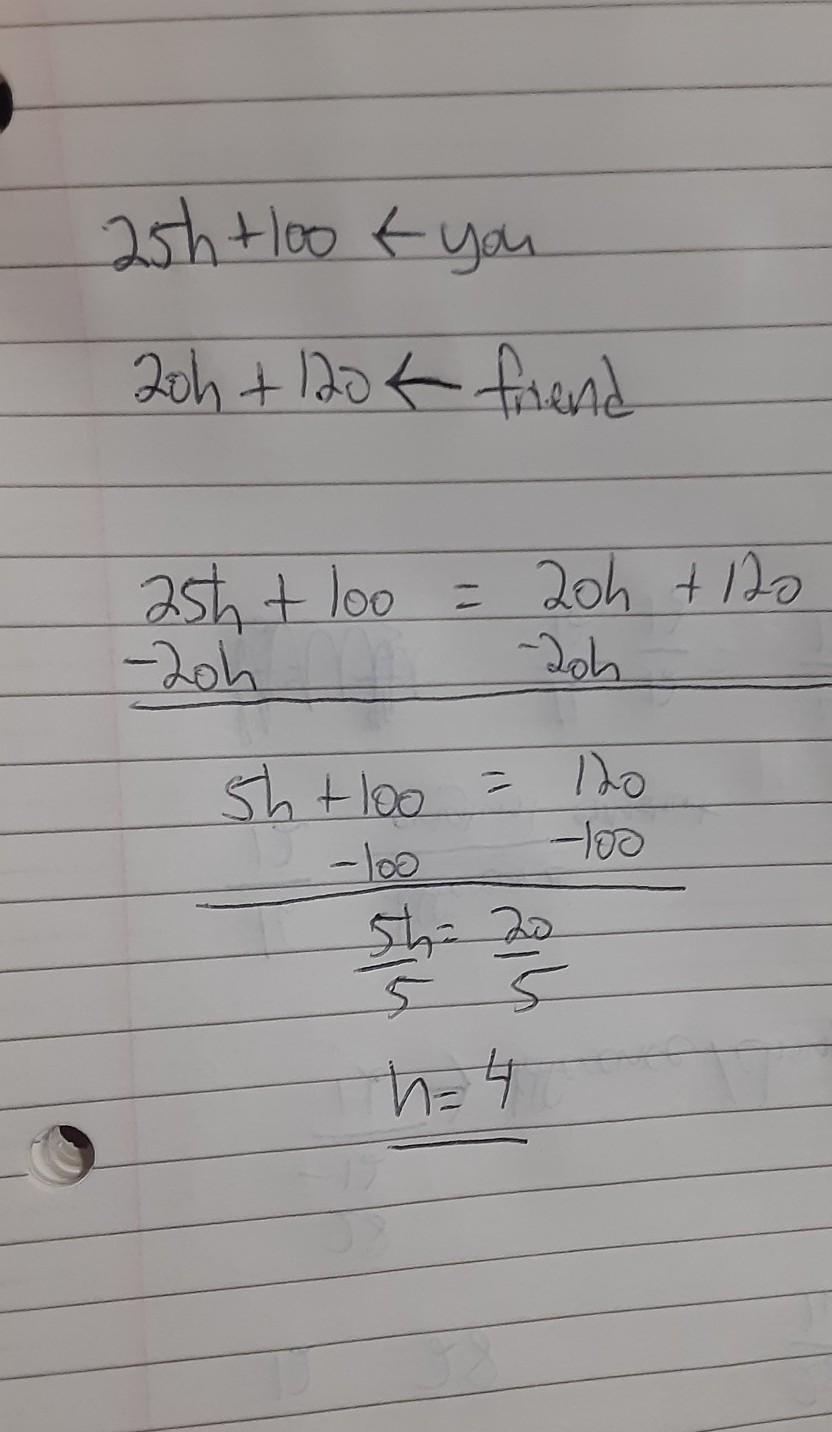 25h + 100 ← you
20h + 120 ← friend
25h + 100 = 20h + 120
-20h -20h
5h + 100 = 120
-100 -100
5h = 20
5 5
h = 4